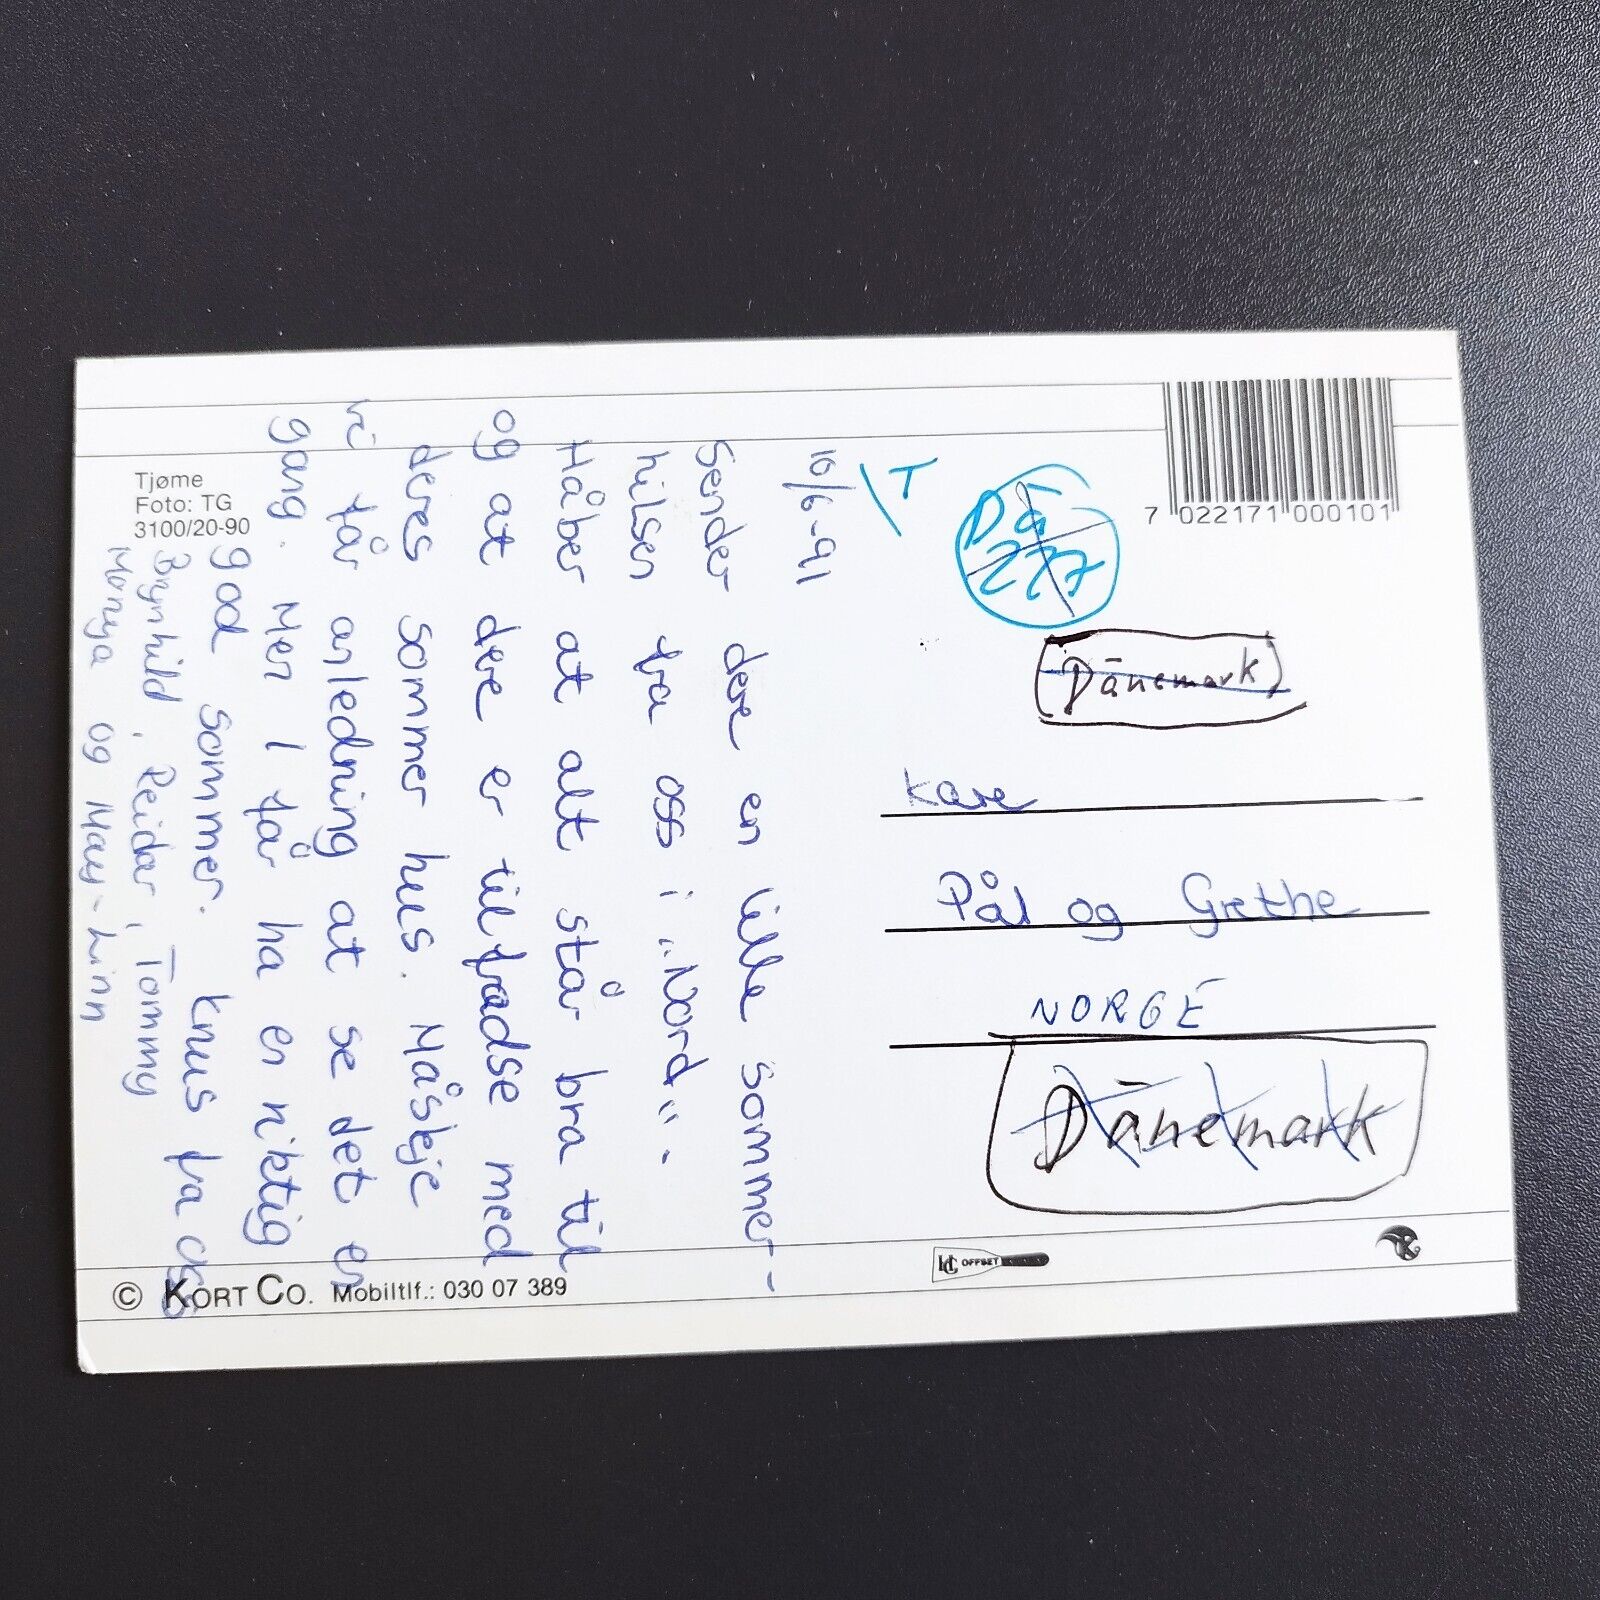 Tjøme
Foto: TG
3100/20-90
7 022171 000101
10/6-91
Sender dere en lille sommer-
hilsen fra oss i "Nord".
Håber at alt står bra til
og at dere er tilfradse med
deres sommer hus. Måskje
vi får anledning at se det en
gang. Men I får ha en riktig
god sommer. Knus fra oss
Brynhild, Reidar, Tommy
Monya og May-Linn
T
Dä
277
Dänemark
Kare
Pål og Grethe
NORGE
Dänemark
© KORT CO. Mobiltlf.: 030 07 389
OFFSET